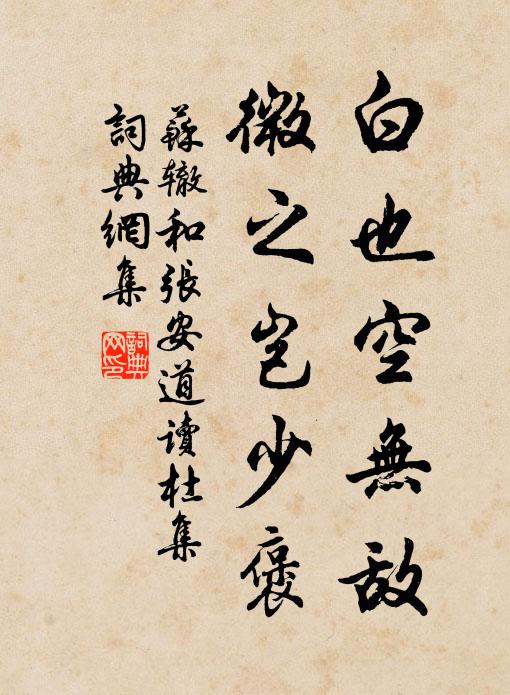 白也空無敵
微之豈少褒
蘇轍和張安道讀杜集
詞典網集
詞典网印